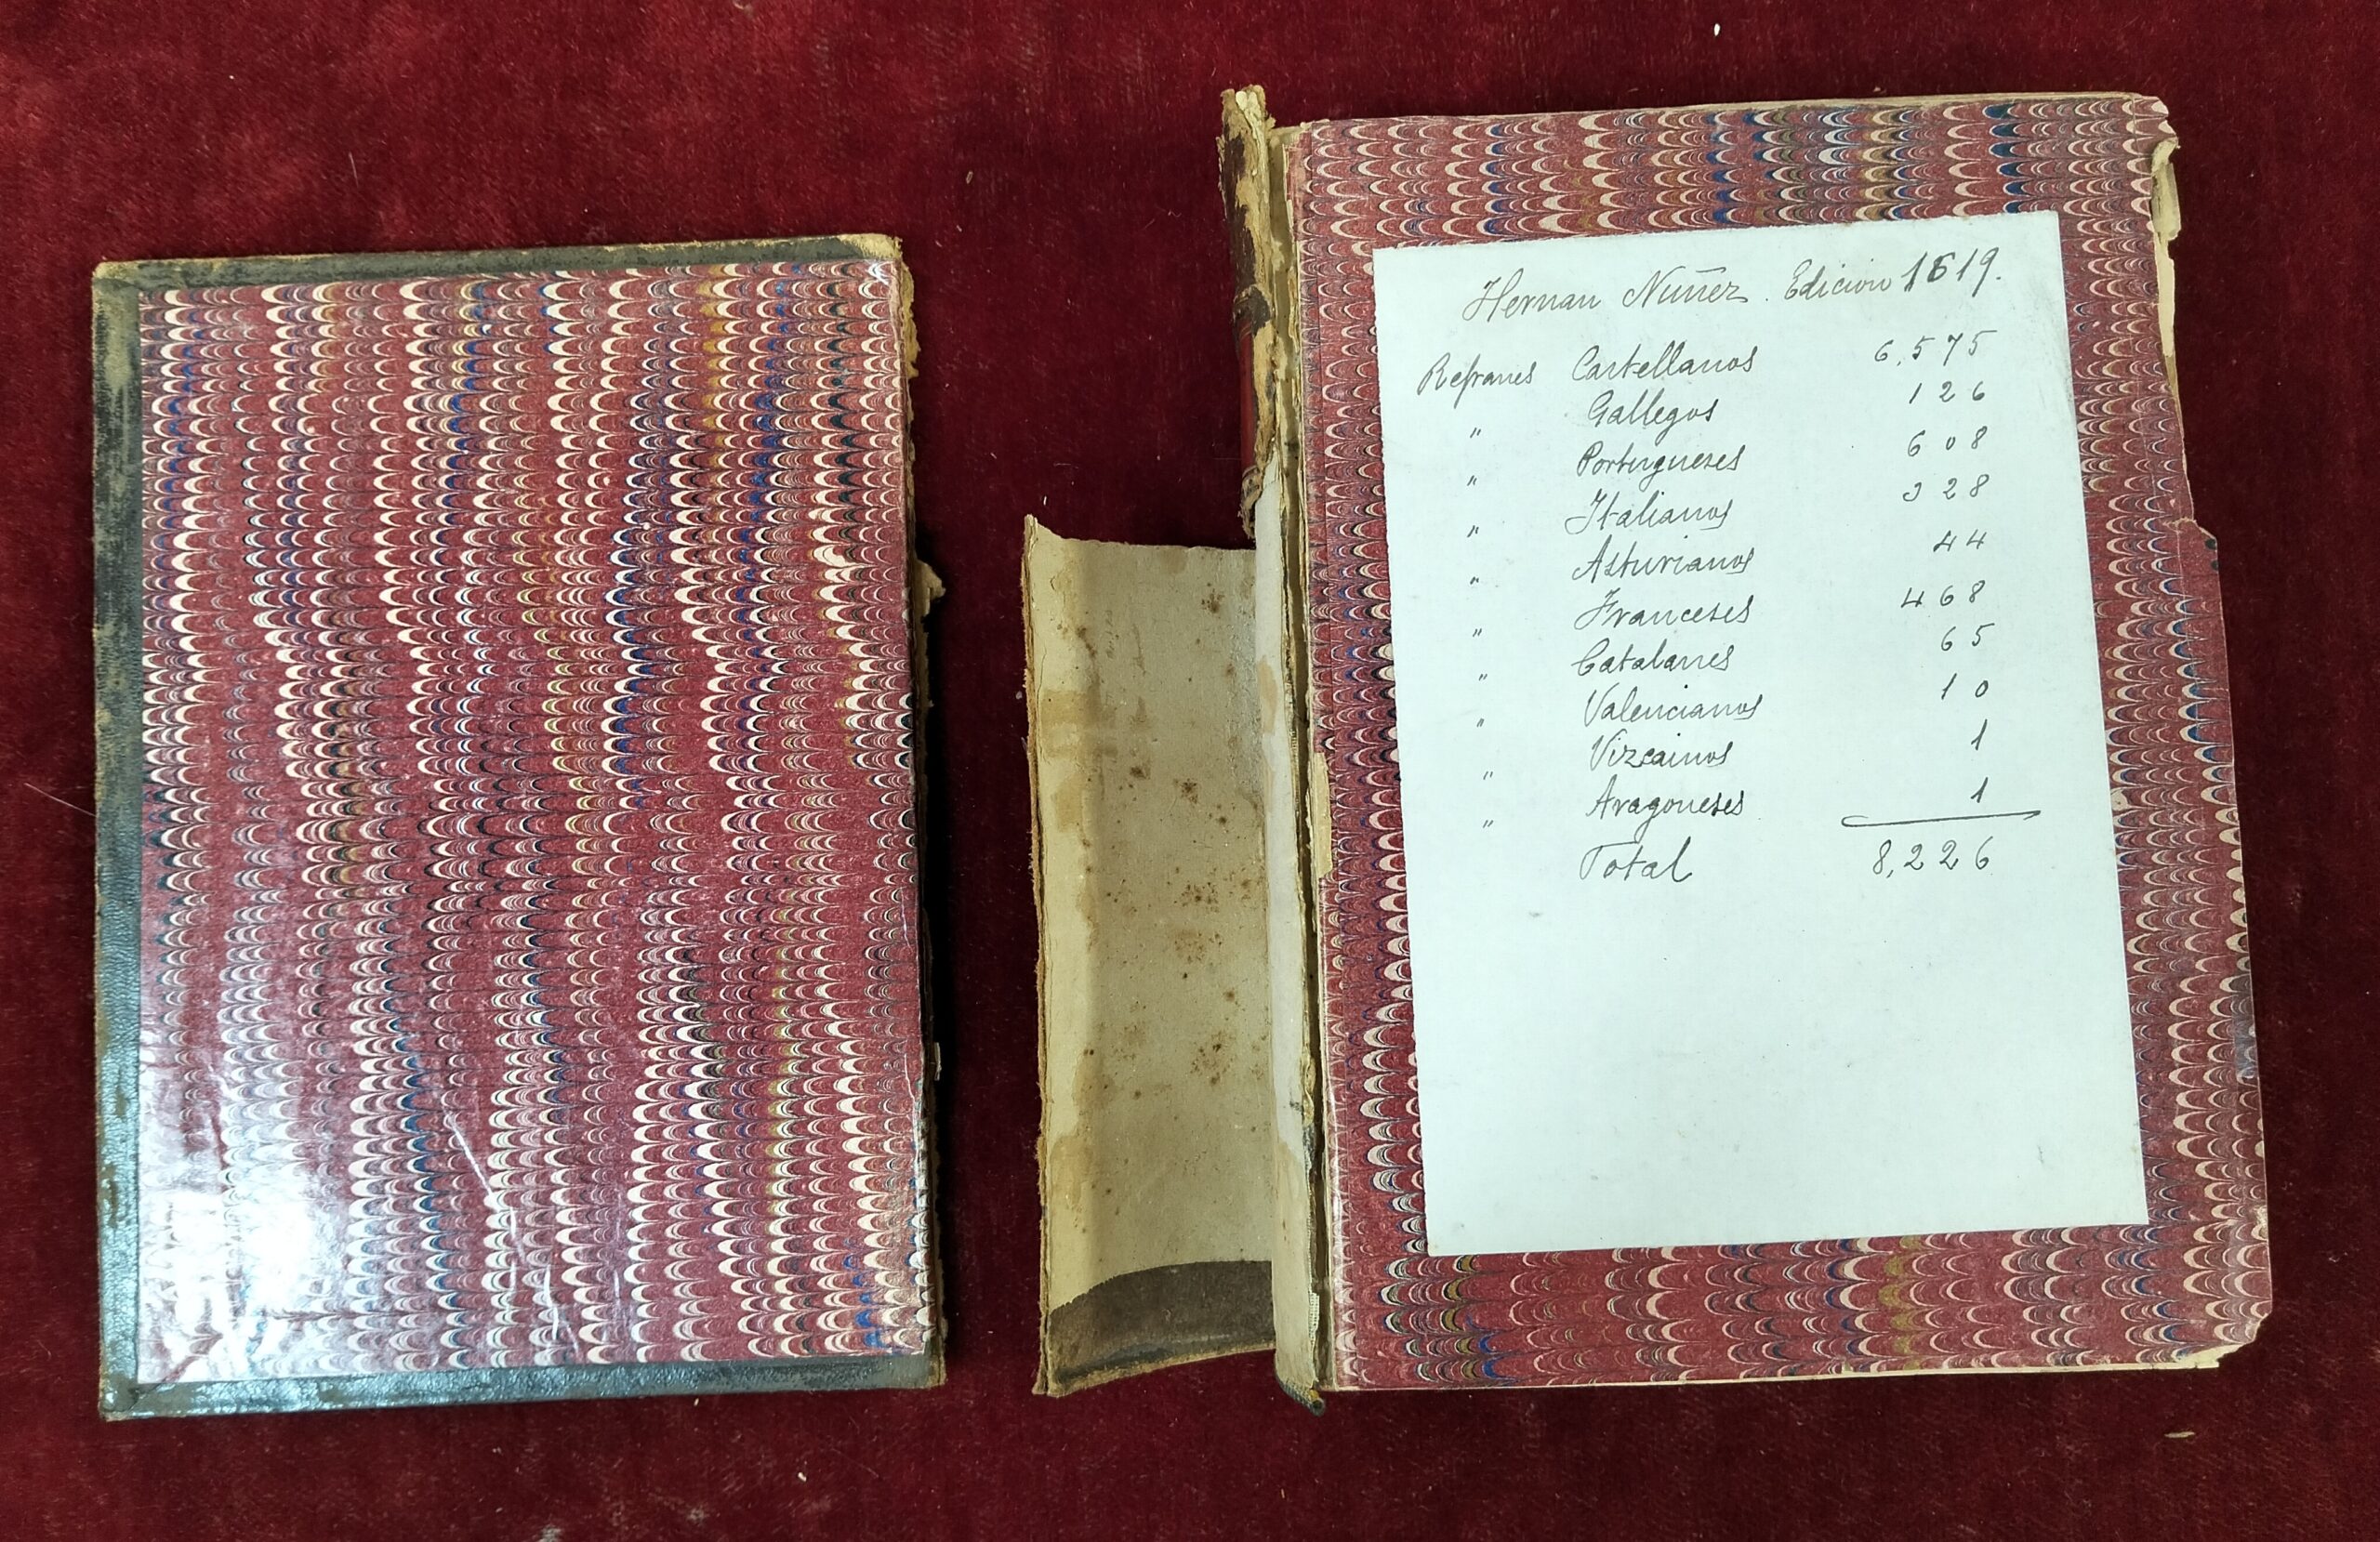 Hernan Nuñez. Edicion 1619.
Refranes Castellanos 6,575
" Gallegos 126
" Portugueses 608
" Italianos 328
" Asturianos 44
" Franceses 468
" Catalanes 65
" Valencianos 10
" Vizcainos 1
" Aragoneses 1
Total 8,226